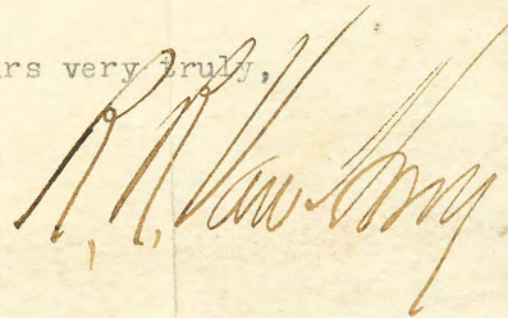 rs very truly,
R. R. Van Horn